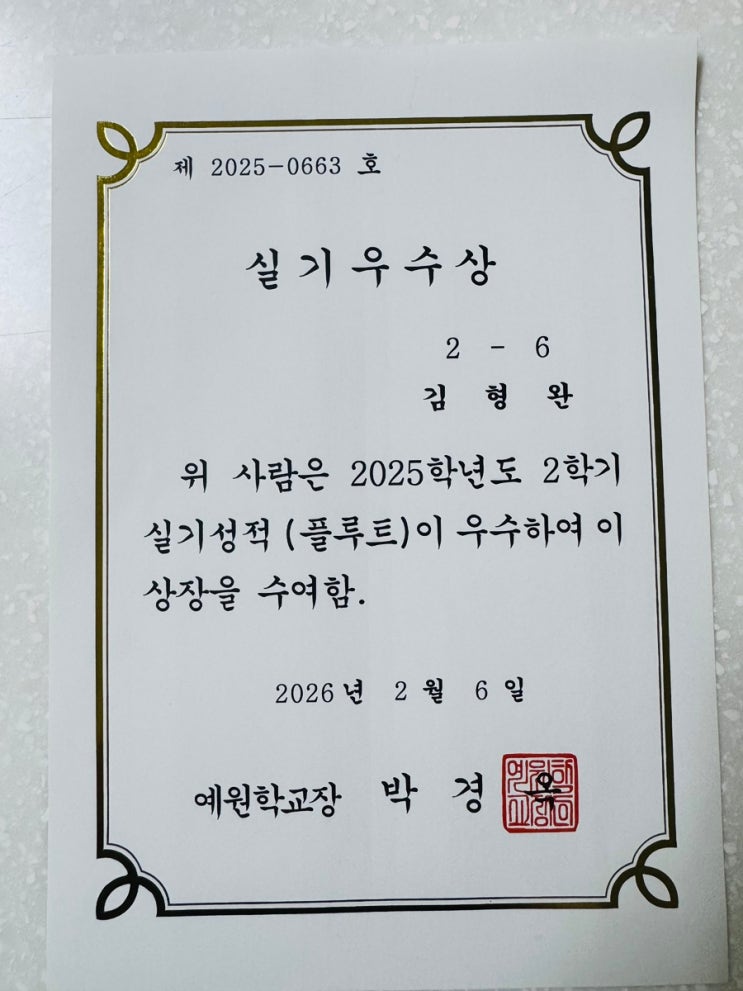 제 2025-0663 호
실기우수상
2 - 6
김 형 완
위 사람은 2025학년도 2학기
실기성적(플루트)이 우수하여 이
상장을 수여함.
2026년 2월 6일
예원학교장 박 경 옥